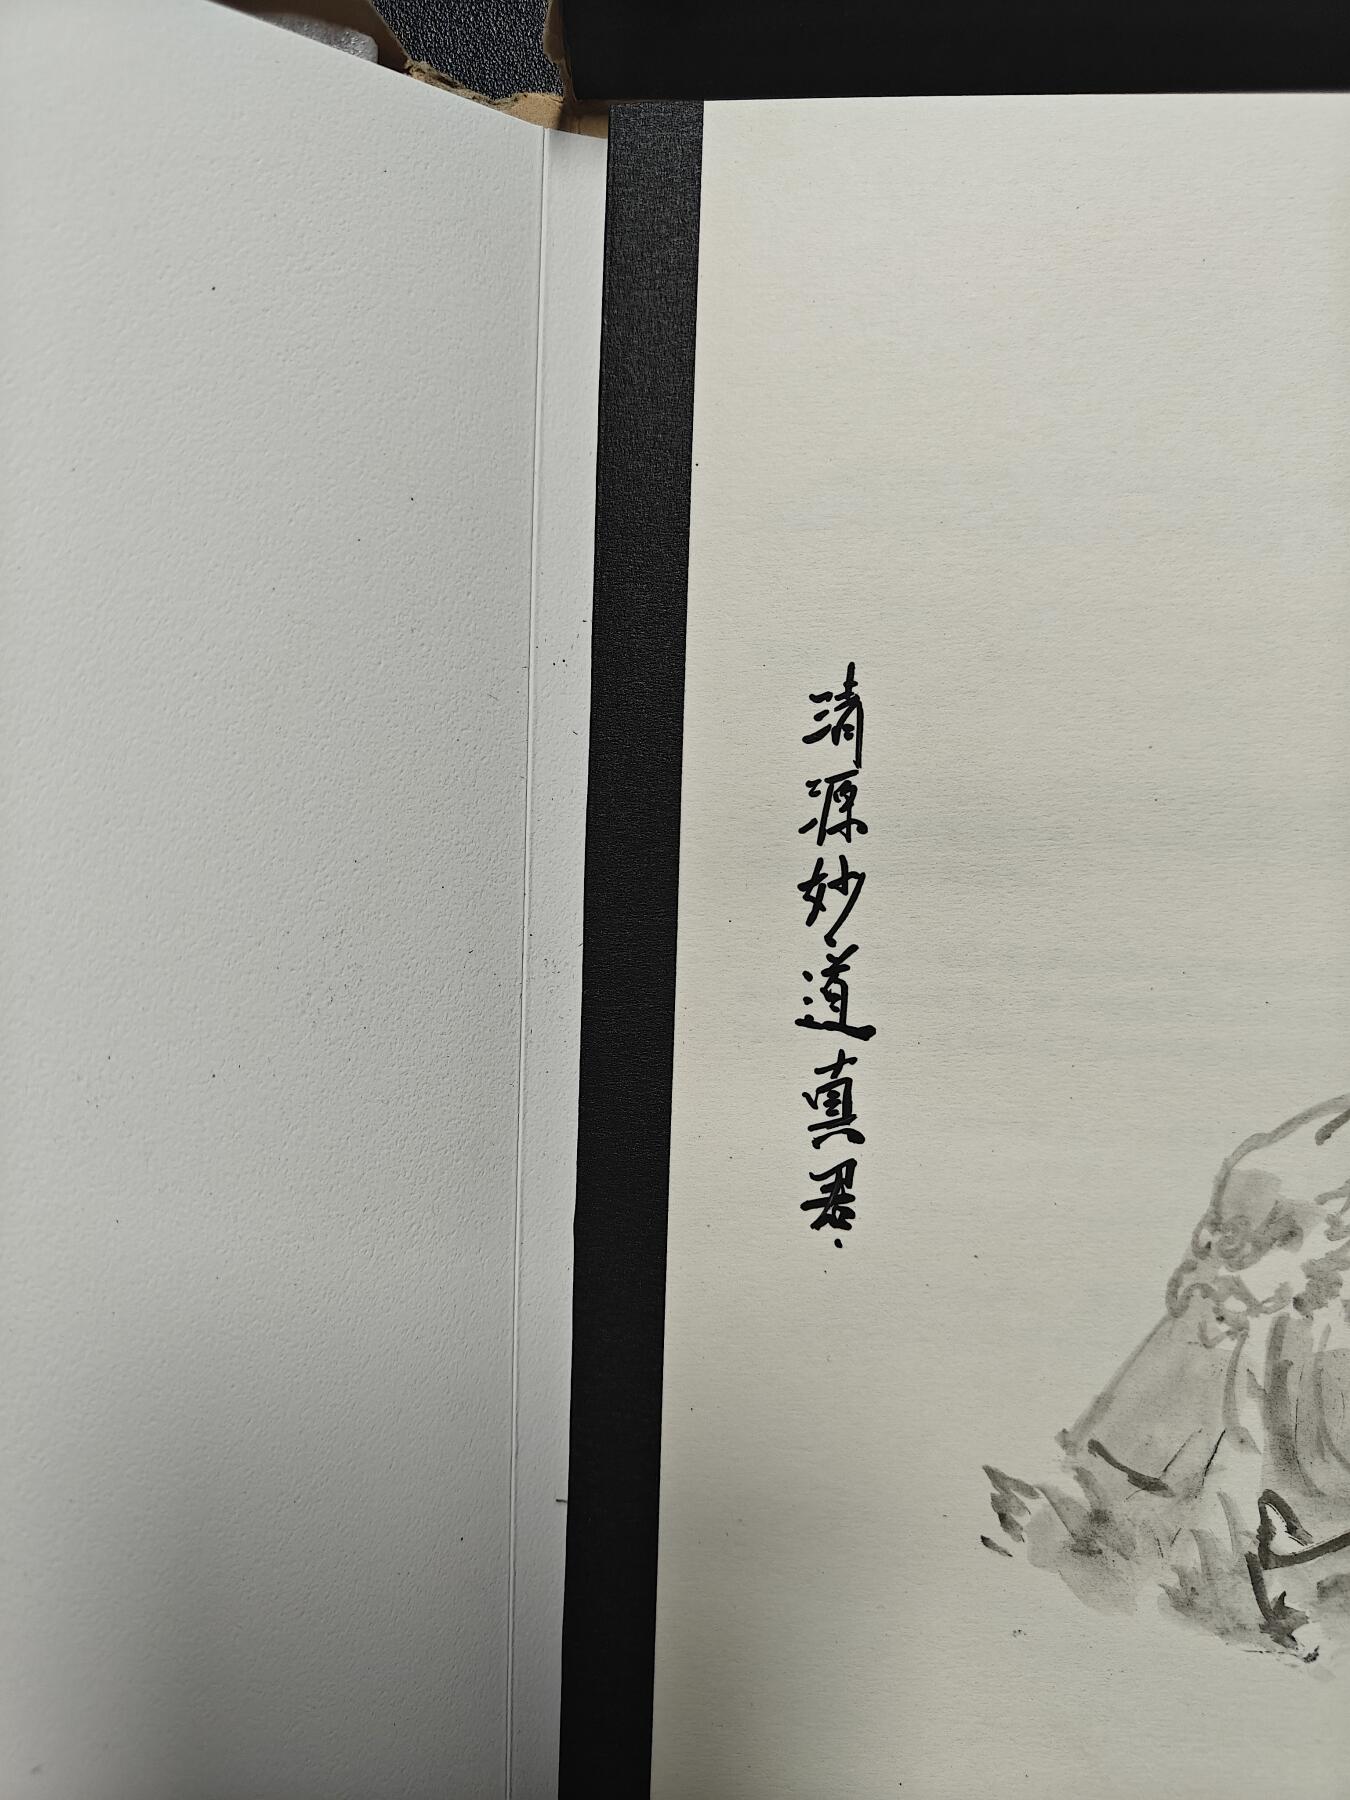 清源妙道真君.